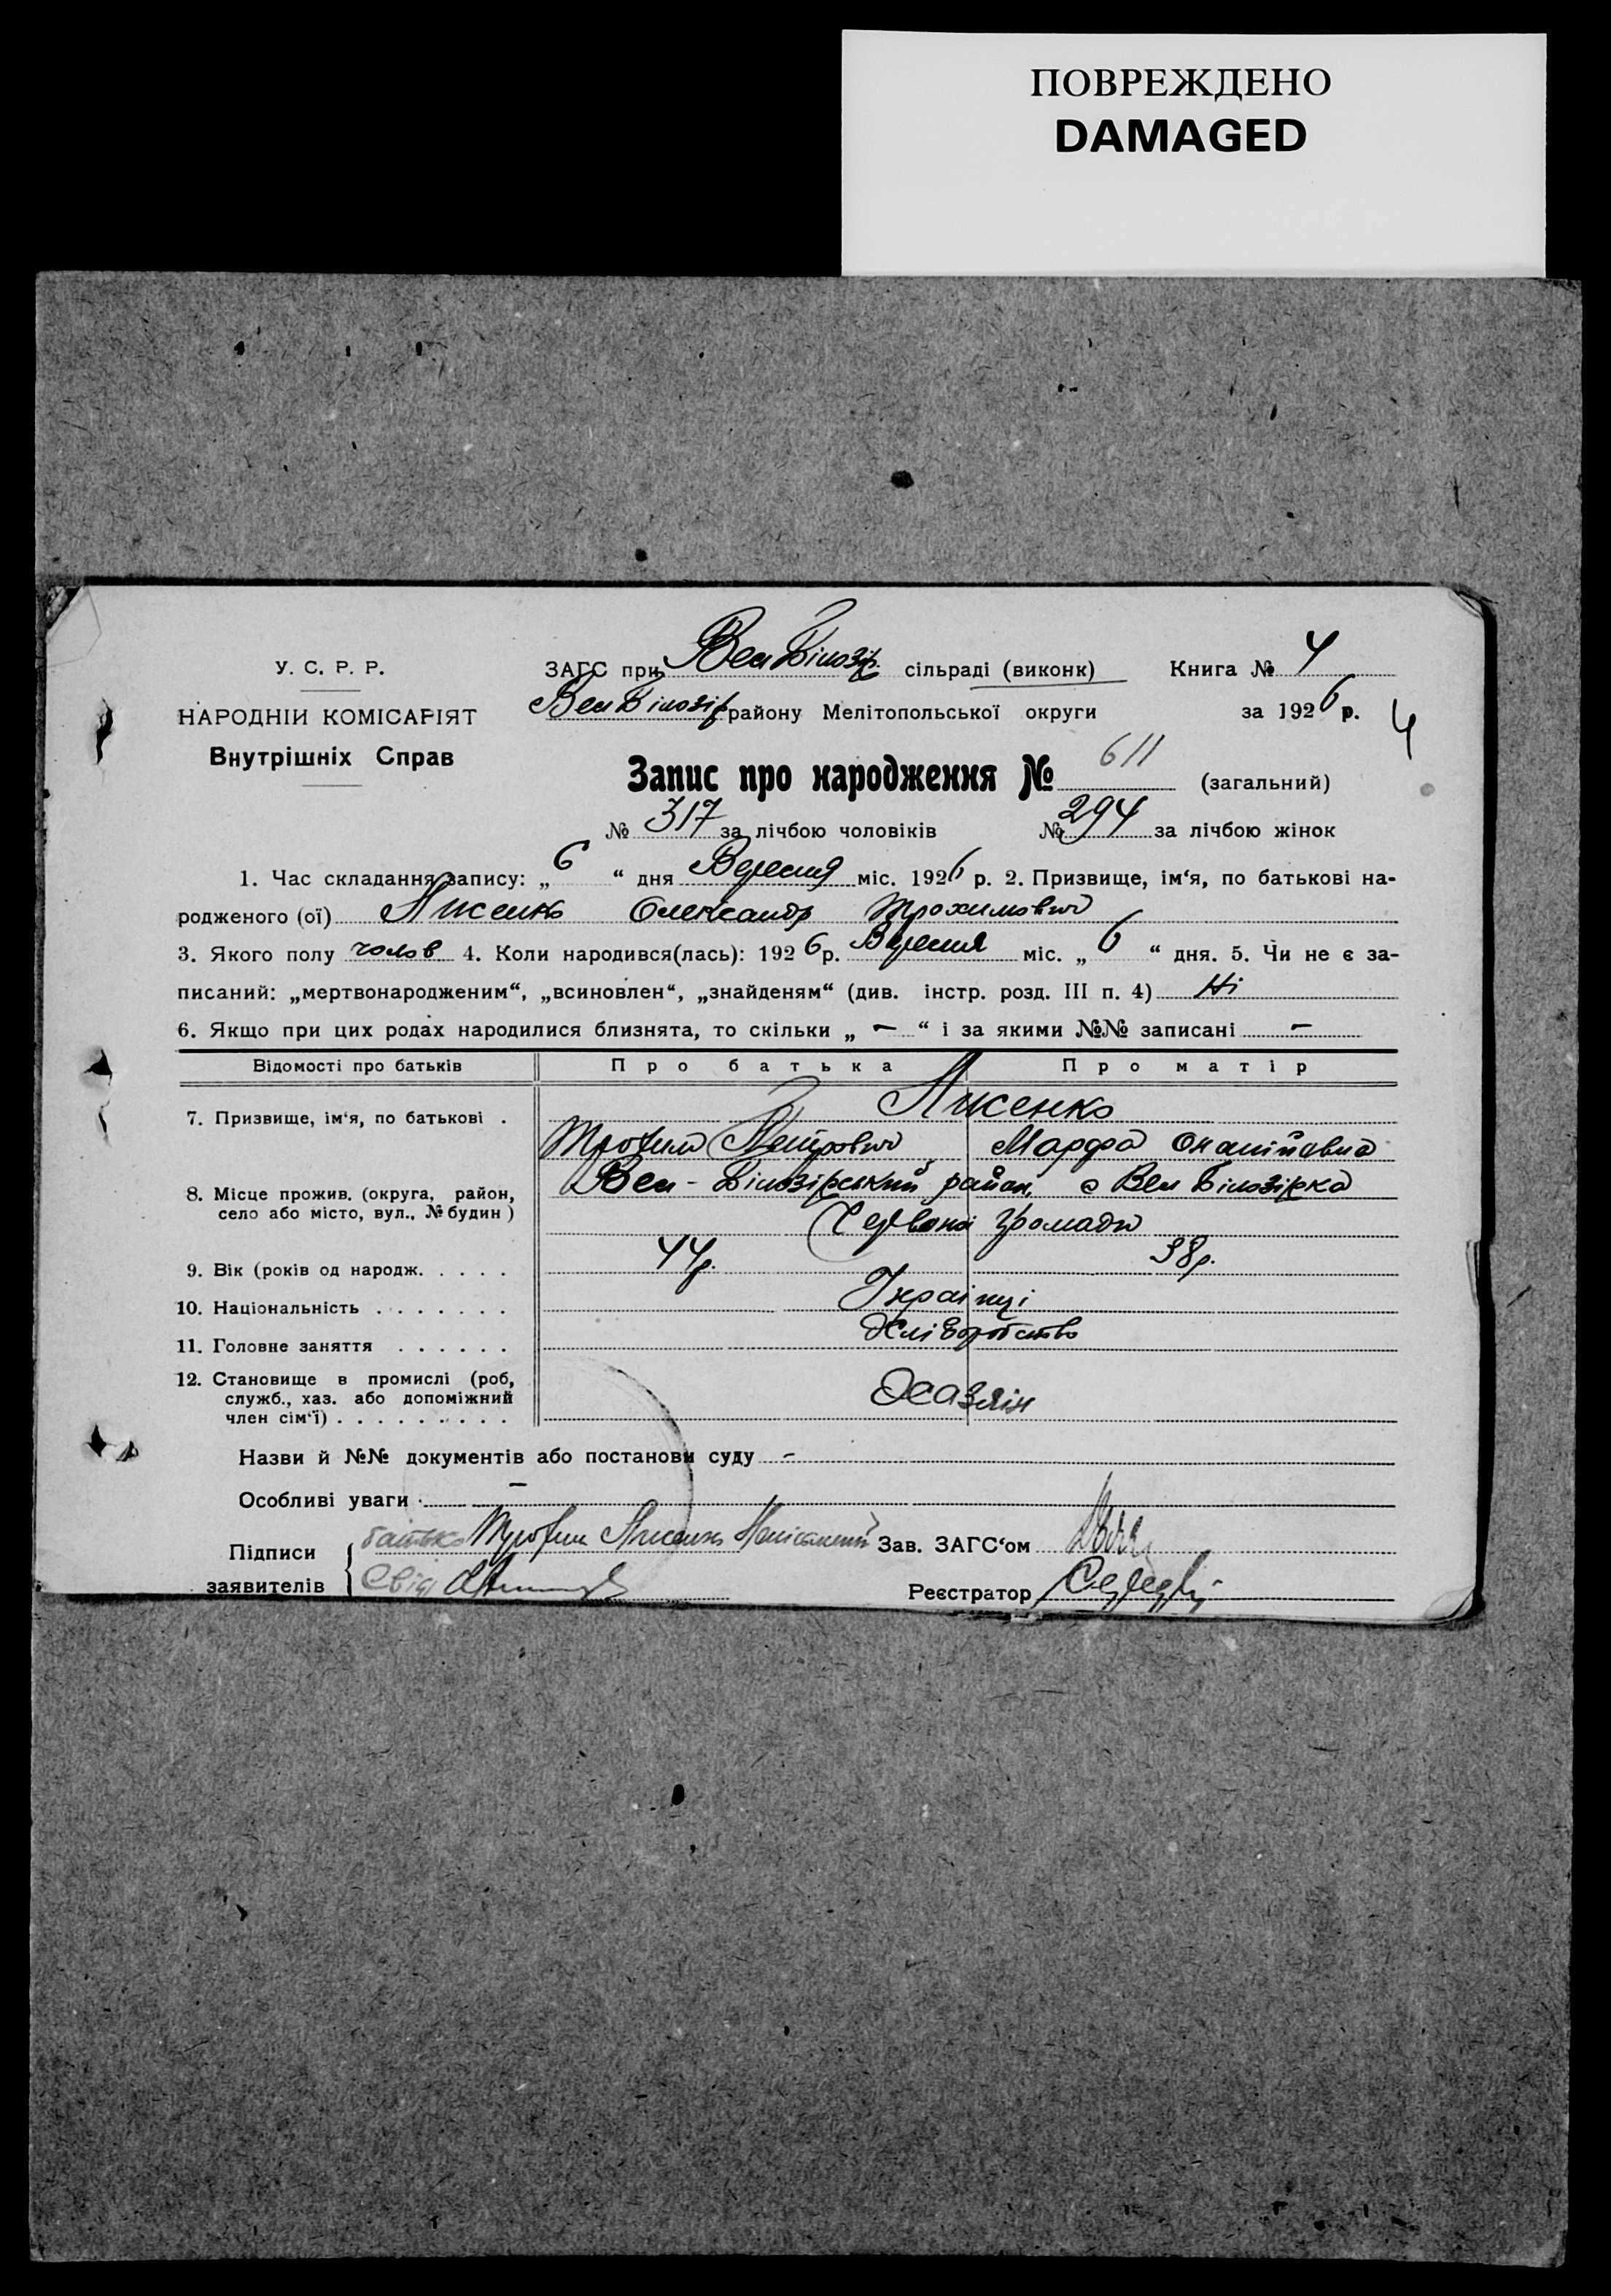 ПОВРЕЖДЕНО
DAMAGED
У. С. Р. Р.
НАРОДНІЙ КОМІСАРІЯТ
Внутрішніх Справ
ЗАГС при Вел Білозір. сільраді (виконк) Книга № 4
Вел Білозір району Мелітопольської округи за 1926 р.
4
Запис про народження № 611 (загальний)
№ 317 за лічбою чоловіків № 294 за лічбою жінок
1. Час складання запису: „6“ дня Вересня міс. 1926 р. 2. Призвище, ім‘я, по батькові на-
родженого (ої) Лисенко Олександр Трохимович
3. Якого полу чолов 4. Коли народився(лась): 1926 р. Вересня міс. „6“ дня. 5. Чи не є за-
писаний: „мертвонародженим“, „всиновлен“, „знайденям“ (див. інстр. розд. III п. 4) Ні
6. Якщо при цих родах народилися близнята, то скільки „ – “ і за якими №№ записані –
Відомості про батьків Про батька Про матір
7. Призвище, ім‘я, по батькові . Лисенко
Трохим Петрович Марфа
8. Місце прожив. (округа, район, село або місто, вул., № будин) Вел - Білозірський район, с Вел Білозірка
громади
9. Вік (років од народж. . . . . 44р. 38р.
10. Національність . . . . . . . Українці
11. Головне заняття . . . . . . Хліборобство
12. Становище в промислі (роб,
служб., хаз. або допоміжний
член сім‘ї) . . . . . . . . . Хазяїн
Назви й №№ документів або постанови суду –
Особливі уваги –
Підписи заявителів батько Трохим Лисенко
Свід
Зав. ЗАГС‘ом
Реєстратор